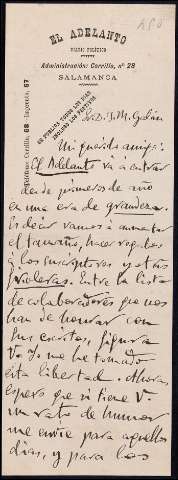 EL ADELANTO
DIARIO POLÍTICO
Administración: Corrillo, nº 28
SALAMANCA
SE PUBLICA TODOS LOS DÍAS
INCLUSO LOS FESTIVOS
Teléfono: Corrillo, 68 - Imprenta, 67
Sr. D. J. M. Galán
Mi querido amigo:
El Adelanto va á entrar
desde primeros de año
en una era de grandeza.
Es decir vamos á aumentar
el tamaño, hacer regalos
á los suscriptores y otras
frioleras. Entre la lista
de colaboradores que nos
han de honrar con
sus escritos, figura
V. Yo me he tomado
esta libertad. Ahora
espero que si tiene V.
un rato de humor
me envíe para aquellos
días, y para los